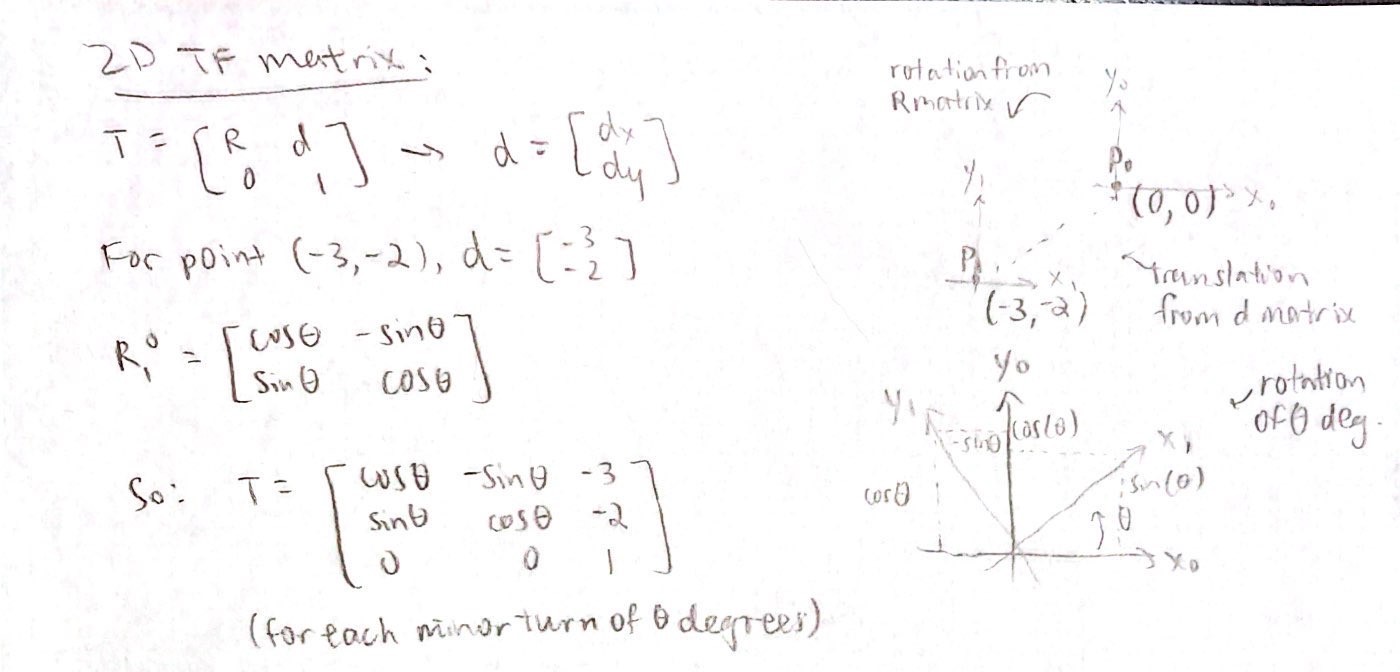 2D TF matrix:
T = [R d
0 1] → d = [dx
dy]
For point (-3,-2), d = [-3
-2]
R₁⁰ = [cosθ -sinθ
sinθ cosθ]
So: T = [cosθ -sinθ -3
sinθ cosθ -2
0 0 1]
(for each minor turn of θ degrees)
rotation from
R matrix
y₀
P₀
(0,0) x₀
y₁
P₁
x₁
(-3,-2)
translation
from d matrix
y₀
y₁
rotation
of θ deg.
-sinθ cos(θ)
x₁
cosθ
sin(θ)
θ
x₀